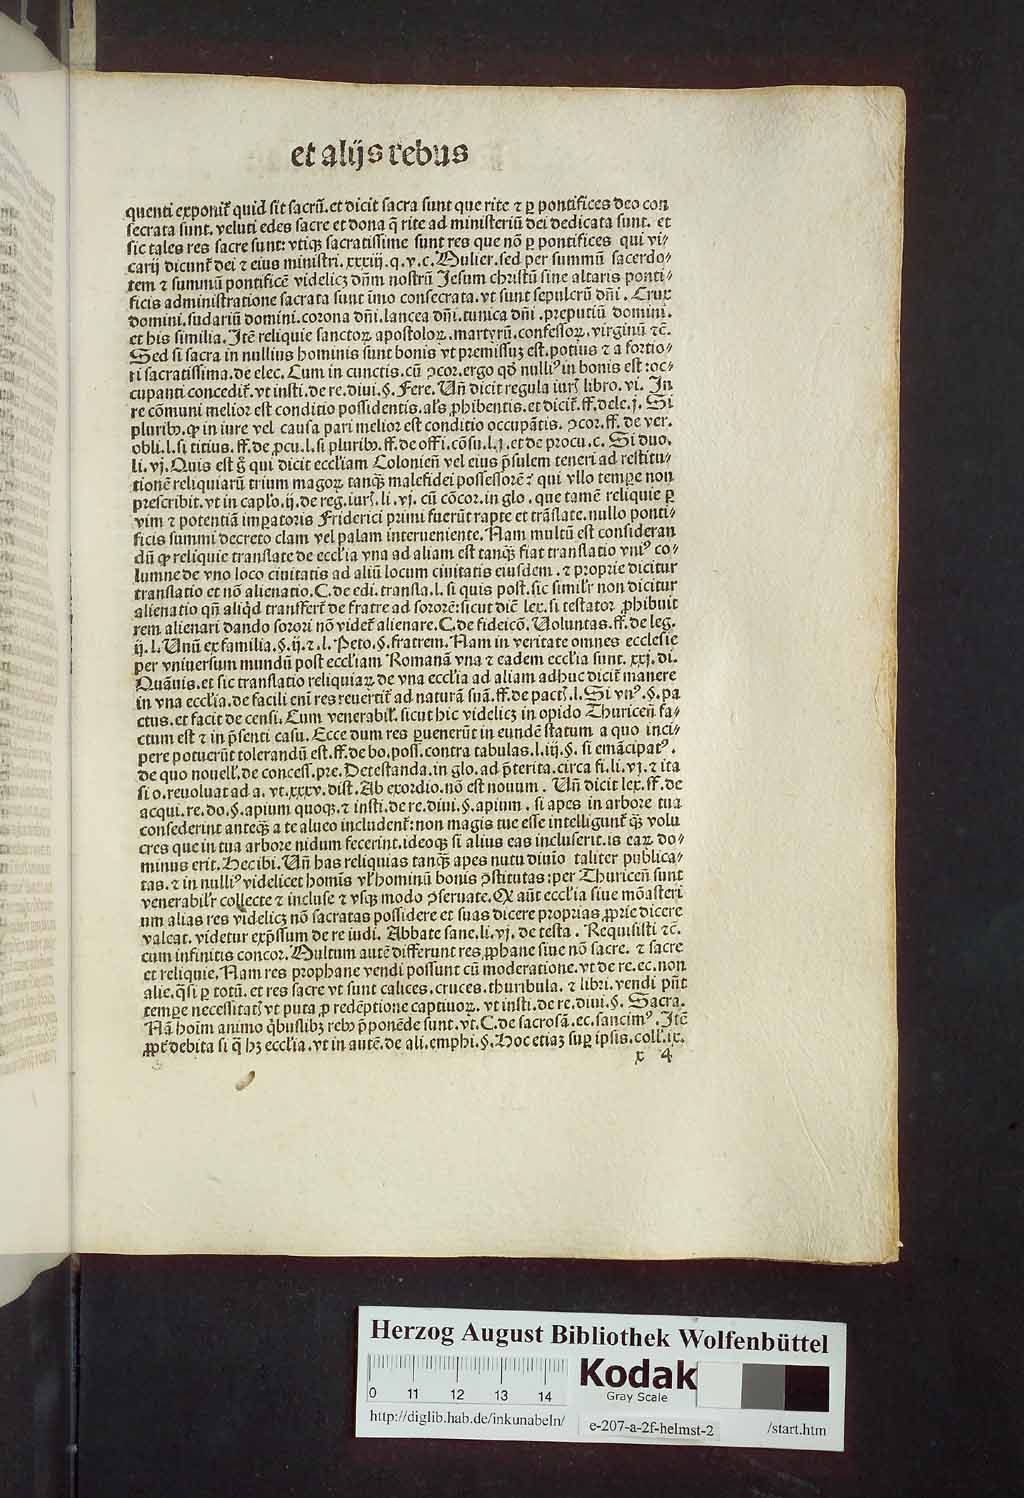 et alijs rebus
quenti exponit̃ quid sit sacrũ. et dicit sacra sunt que rite ⁊ ꝑ pontifices deo con
secrata sunt. veluti edes sacre et dona q̃ rite ad ministeriũ dei dedicata sunt. et
sic tales res sacre sunt: vtiqꝫ sacratissime sunt res que nõ ꝑ pontifices qui vi⸗
carij dicunt̃ dei ⁊ eius ministri. xxxiij. q. v. c. Mulier. sed per summũ sacerdo⸗
tem ⁊ summũ pontificẽ videlicꝫ dñm nostrũ Jesum christũ sine altaris ponti⸗
ficis administratione sacrata sunt imo consecrata. vt sunt sepulcrũ dñi. Crux
domini. sudariũ domini. corona dñi. lancea dñi. tunica dñi. preputiũ domini.
et his similia. Jtẽ reliquie sanctoꝝ apostoloꝝ. martyrũ. confessoꝝ. virginũ ⁊c̃.
Sed si sacra in nullius hominis sunt bonis vt premissuꝫ est. potius ⁊ a fortio⸗
ri sacratissima. de elec. Cum in cunctis. cũ ↄcor. ergo qď nulliꝰ in bonis est: oc⸗
cupanti concedit̃. vt insti. de re. diui. §. Fere. Uñ dicit regula iurꝭ libro. vi. Jn
re cõmuni melior est conditio possidentis. al̃s ꝓhibentis. et dicit̃. ff. de le. j. Si
pluribꝰ. ꝙ in iure vel causa pari melior est conditio occupãtis. ↄcor. ff. de ver.
obli. l. si titius. ff. de ꝓcu. l. si pluribꝰ. ff. de offi. cõsu. l. j. et de procu. c. Si duo.
li. vj. Quis est g̃ qui dicit eccl̃iam Colonieñ vel eius p̃sulem teneri ad restitu⸗
tionẽ reliquiarũ trium magoꝝ tanqꝫ malefidei possessorẽ? qui vllo tempe non
prescribit. vt in capl̃o. ij. de reg. iurꝭ. li. vj. cũ cõcor. in glo. que tamẽ reliquie ꝑ
vim ⁊ potentiã imꝑatoris Friderici primi fuerũt rapte et trãslate. nullo ponti⸗
ficis summi decreto clam vel palam interueniente. Nam multũ est consideran
dũ ꝙ reliquie translate de eccl̃ia vna ad aliam est tanqꝫ fiat translatio vniꝰ co⸗
lumne de vno loco ciuitatis ad aliũ locum ciuitatis eiusdem. ⁊ proprie dicitur
translatio et nõ alienatio. C. de edi. transla. l. si quis post. sic simil̃r non dicitur
alienatio qñ aliq̃d transfert̃ de fratre ad sororẽ: sicut diẽ lex. si testator ꝓhibuit
rem alienari dando sorori nõ videt̃ alienare. C. de fideicõ. Uoluntas. ff. de leg.
ij. l. Unũ ex familia. §. ij. ⁊. l. Peto. §. fratrem. Nam in veritate omnes ecclesie
per vniuersum mundũ post eccl̃iam Romanã vna ⁊ eadem eccl̃ia sunt. xxj. di.
Quãuis. et sic translatio reliquiaꝝ de vna eccl̃ia ad aliam adhuc dicit̃ manere
in vna eccl̃ia. de facili eni res reuertit̃ ad naturã suã. ff. de pactꝭ. l. Si vnꝰ. §. pa
ctus. et facit de censi. Cum venerabil̃. sicut hic videlicꝫ in opido Thuriceñ fa⸗
ctum est ⁊ in p̃senti casu. Ecce dum res ꝑuenerũt in eundẽ statum a quo inci⸗
pere potuerũt tolerandũ est. ff. de bo. poss. contra tabulas. l. iij. §. si emãcipatꝰ.
de quo nouell̃. de concess. pre. Detestanda. in glo. ad p̃terita. circa fi. li. vj. ⁊ ita
si o. reuoluat ad a. vt. xxxv. dist. Ab exordio. nõ est nouum. Uñ dicit lex. ff. de
acqui. re. do. §. apium quoqꝫ. ⁊ insti. de re. diui. §. apium. si apes in arbore tua
consederint anteqꝫ a te alueo includent̃: non magis tue esse intelligunt̃ qꝫ volu
cres que in tua arbore nidum fecerint. ideoqꝫ si alius eas incluserit. is eaꝝ do⸗
minus erit. Hec ibi. Uñ has reliquias tanqꝫ apes nutu diuio taliter publica⸗
tas. ⁊ in nulliꝰ videlicet homis vl̃ hominũ bonis ↄstitutas: per Thuriceñ sunt
venerabil̃r collecte ⁊ incluse ⁊ vsqꝫ modo ↄseruate. Qđ aũt eccl̃ia siue mõasteri
um alias res videlicꝫ nõ sacratas possidere et suas dicere proprias ꝓprie dicere
valeat. videtur exp̃ssum de re iudi. Abbate sane. li. vj. de testa. Requisisti ⁊c̃.
cum infinitis concor. Multum autẽ differunt res ꝓphane siue nõ sacre. ⁊ sacre
et reliquie. Nam res prophane vendi possunt cũ moderatione. vt de re. ec. non
alie. q̃si ꝑ totũ. et res sacre vt sunt calices. cruces. thuribula. ⁊ libri. vendi pñt
tempe necessitatꝭ vt puta ꝓ redẽptione captiuoꝝ. vt insti. de re. diui. §. Sacra.
Nã hoim animo q̃buslibꝫ rebꝰ p̃ponẽde sunt. vt. C. de sacrosã. ec. sancimꝰ. Jtẽ
ꝓpt̃ debita si q̃ hꝫ eccl̃ia. vt in autẽ. de ali. emphi. §. Hoc etiaꝫ suꝑ ipsis. coll̃. ix.
x 4
Herzog August Bibliothek Wolfenbüttel
0 11 12 13 14
Kodak
Gray Scale
http://diglib.hab.de/inkunabeln/ e-207-a-2f-helmst-2 /start.htm